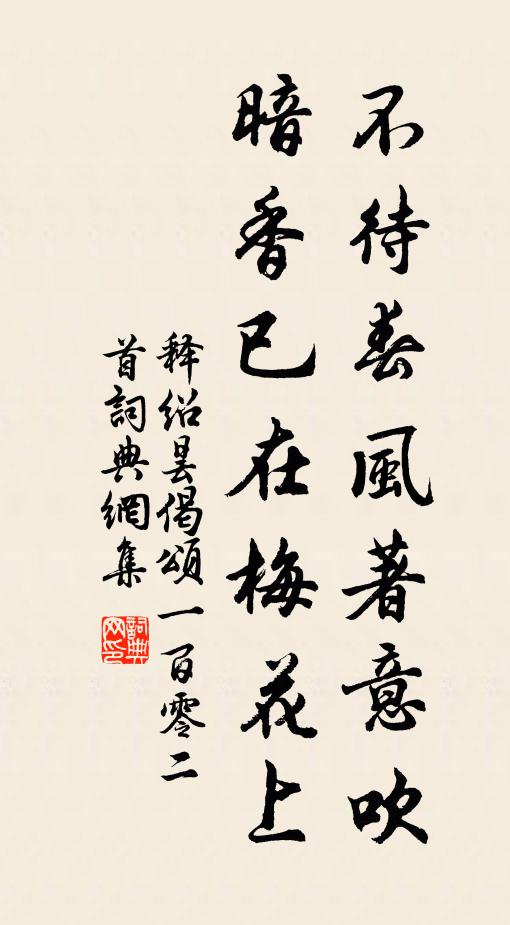 不待春風著意吹
暗香已在梅花上
释绍昙偈頌一百零二
首詞典網集
詞典
网印